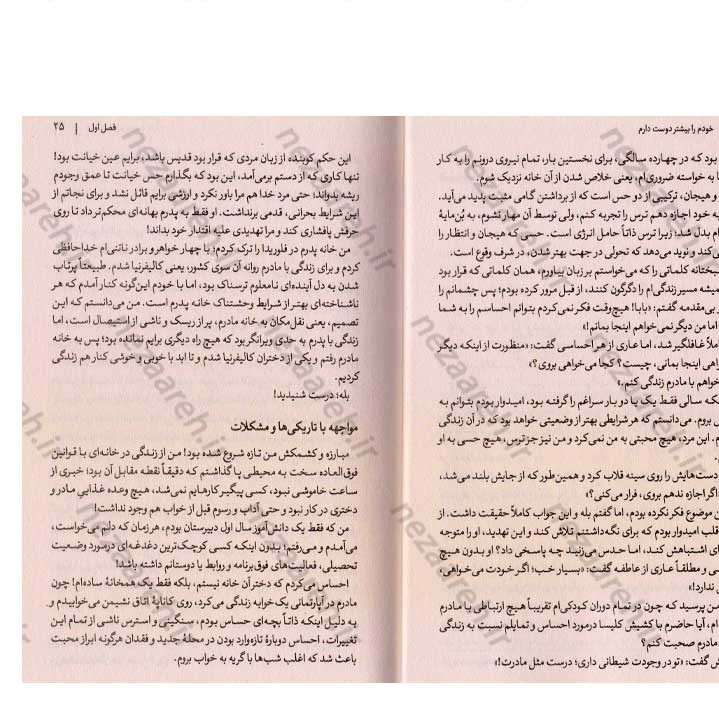 خودم را بیشتر دوست دارم
بود که در چهارده سالگی، برای نخستین بار، تمام نیروی درونم را به کار
به خواسته ضروری‌ام، یعنی خلاص شدن از آن خانه نزدیک شوم.
و هیجان، ترکیبی از دو حس است که از برداشتن گامی مثبت پدید می‌آید.
به خود اجازه دهم ترس را تجربه کنم، ولی توسط آن مهار نشوم، به بُن‌مایهٔ
بدل شد؛ زیرا ترس ذاتاً حامل انرژی است. حسی که هیجان و انتظار را
کند و نوید می‌دهد که تحولی در جهت بهتر شدن، در شرف وقوع است.
کلماتی را که می‌خواستم بر زبان بیاورم، همان کلماتی که قرار بود
مسیر زندگی‌ام را دگرگون کنند، از قبل مرور کرده بودم؛ پس چشمانم را
بی‌مقدمه گفتم: «بابا! هیچ‌وقت فکر نمی‌کردم بتوانم احساسم را به شما
اما من دیگر نمی‌خواهم اینجا بمانم!»
غافلگیر شد، اما عاری از هر احساسی گفت: «منظورت از اینکه دیگر
اینجا بمانی، چیست؟ کجا می‌خواهی بروی؟»
با مادرم زندگی کنم.»
سالی فقط یک یا دو بار سراغم را گرفته بود، امیدوار بودم بتوانم به
بروم. می‌دانستم که هر شرایطی بهتر از وضعیتی خواهد بود که در آن زندگی
این مرد، هیچ محبتی به من نمی‌کرد و من نیز جز ترس، هیچ حسی به او
دست‌هایش را روی سینه قلاب کرد و همین‌طور که از جایش بلند می‌شد،
اگر اجازه ندهم بروی، فرار می‌کنی؟»
موضوع فکر نکرده بودم، اما گفتم بله و این جواب کاملاً حقیقت داشت. از
قلب امیدوار بودم که برای نگه‌داشتنم تلاش کند و این تهدید، او را متوجه
اشتباهش کند، اما حدس می‌زنید چه پاسخی داد؟ او بدون هیچ
و مطلقاً عاری از عاطفه گفت: «بسیار خب؛ اگر خودت می‌خواهی،
ندارد!»
پرسید که چون در تمام دوران کودکی‌ام تقریباً هیچ ارتباطی با مادرم
آیا حاضرم با کشیش کلیسا درمورد احساس و تمایلم نسبت به زندگی
مادرم صحبت کنم؟
گفت: «تو در وجودت شیطانی داری؛ درست مثل مادرت!»
فصل اول | ۲۵
این حکم کوبنده از زبان مردی که قرار بود قدیس باشد، برایم عین خیانت بود!
تنها کاری که از دستم برمی‌آمد، این بود که بگذارم حس خیانت تا عمق وجودم
ریشه بدواند؛ حتی مرد خدا هم مرا باور نکرد و ارزشی برایم قائل نشد و برای نجاتم از
این شرایط بحرانی، قدمی برنداشت. او فقط به پدرم بهانه‌ای محکم‌تر داد تا روی
حرفش پافشاری کند و مرا تهدیدی علیه اقتدار خود بداند!
من خانه پدرم در فلوریدا را ترک کردم؛ با چهار خواهر و برادر ناتنی‌ام خداحافظی
کردم و برای زندگی با مادرم روانه آن سوی کشور، یعنی کالیفرنیا شدم. طبیعتاً پرتاب
شدن به دل آینده‌ای نامعلوم ترسناک بود، اما با خودم این‌گونه کنار آمدم که هر
ناشناخته‌ای بهتر از شرایط وحشتناک خانه پدرم است. من می‌دانستم که این
تصمیم، یعنی نقل‌مکان به خانه مادرم، پر از ریسک و ناشی از استیصال است، اما
زندگی با پدرم به حدی ویرانگر بود که هیچ راه دیگری برایم نمانده بود؛ پس به خانه
مادرم رفتم و یکی از دختران کالیفرنیا شدم و تا ابد با خوبی و خوشی کنار هم زندگی
کردیم.
بله؛ درست شنیدید!
مواجهه با تاریکی‌ها و مشکلات
مبارزه و کشمکش من تازه شروع شده بود! من از زندگی در خانه‌ای با قوانین
فوق‌العاده سخت به محیطی پا گذاشتم که دقیقاً نقطه مقابل آن بود؛ خبری از
ساعت خاموشی نبود، کسی پیگیر کارهایم نمی‌شد، هیچ وعده غذایی مادر و
دختری در کار نبود و حتی آداب و رسوم قبل از خواب هم وجود نداشت!
من که فقط یک دانش‌آموز سال اول دبیرستان بودم، هر زمان که دلم می‌خواست،
می‌آمدم و می‌رفتم؛ بدون اینکه کسی کوچک‌ترین دغدغه‌ای درمورد وضعیت
تحصیلی، فعالیت‌های فوق‌برنامه و روابط یا دوستانم داشته باشد!
احساس می‌کردم که دختر آن خانه نیستم، بلکه فقط یک همخانهٔ ساده‌ام! چون
مادرم در آپارتمانی یک‌خوابه زندگی می‌کرد، روی کاناپهٔ اتاق نشیمن می‌خوابیدم و
به دلیل اینکه ذاتاً بچه‌ای حساس بودم، سنگینی و استرس ناشی از تمام این
تغییرات، احساس دوبارهٔ تازه‌وارد بودن در محلهٔ جدید و فقدان هرگونه ابراز محبت
باعث شد که اغلب شب‌ها با گریه به خواب بروم.
nezaareh.ir